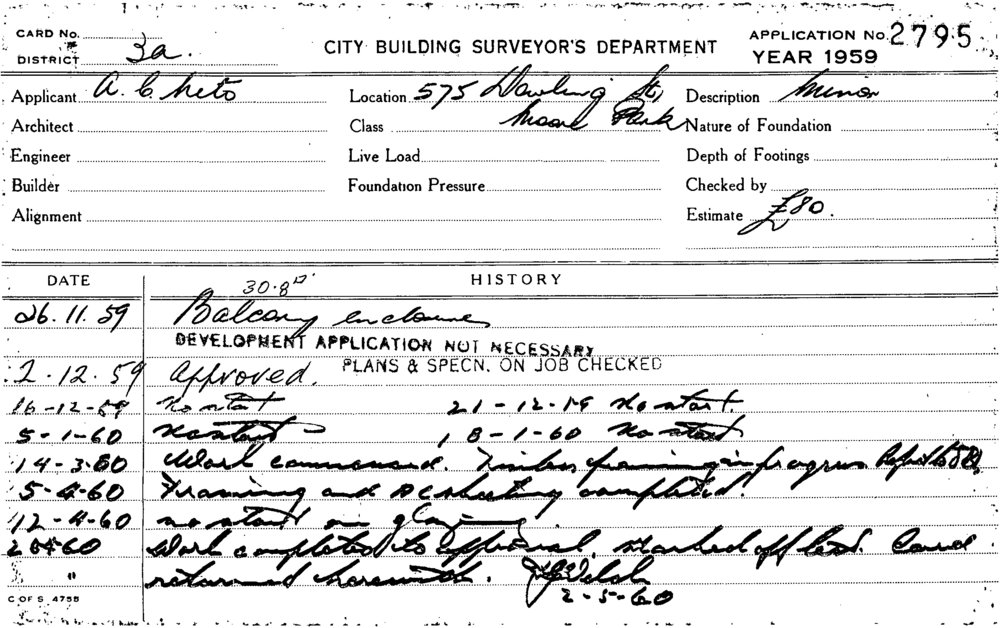 CARD No.
DISTRICT 3a.
CITY BUILDING SURVEYOR'S DEPARTMENT
APPLICATION No. 2795
YEAR 1959
Applicant A. C. Neto
Location 575 Dowling St,
Moore Park
Description Minor
Architect
Class
Nature of Foundation
Engineer
Live Load
Depth of Footings
Builder
Foundation Pressure
Checked by
Alignment
Estimate £80.
DATE
HISTORY
30.8
26.11.59 Balcony enclosure
DEVELOPMENT APPLICATION NOT NECESSARY
PLANS & SPECN. ON JOB CHECKED
2.12.59 Approved.
16-12-59 No start 21-12-59 No start.
5-1-60 No start 18-1-60 No start
14-3-60 Work commenced. Timber framing in progress
5-4-60 Framing and AC sheeting completed.
12-4-60 no start on glazing
Work completed to approval. marked off list. Card
" returned herewith. Welsh
2-5-60
C OF S 4755